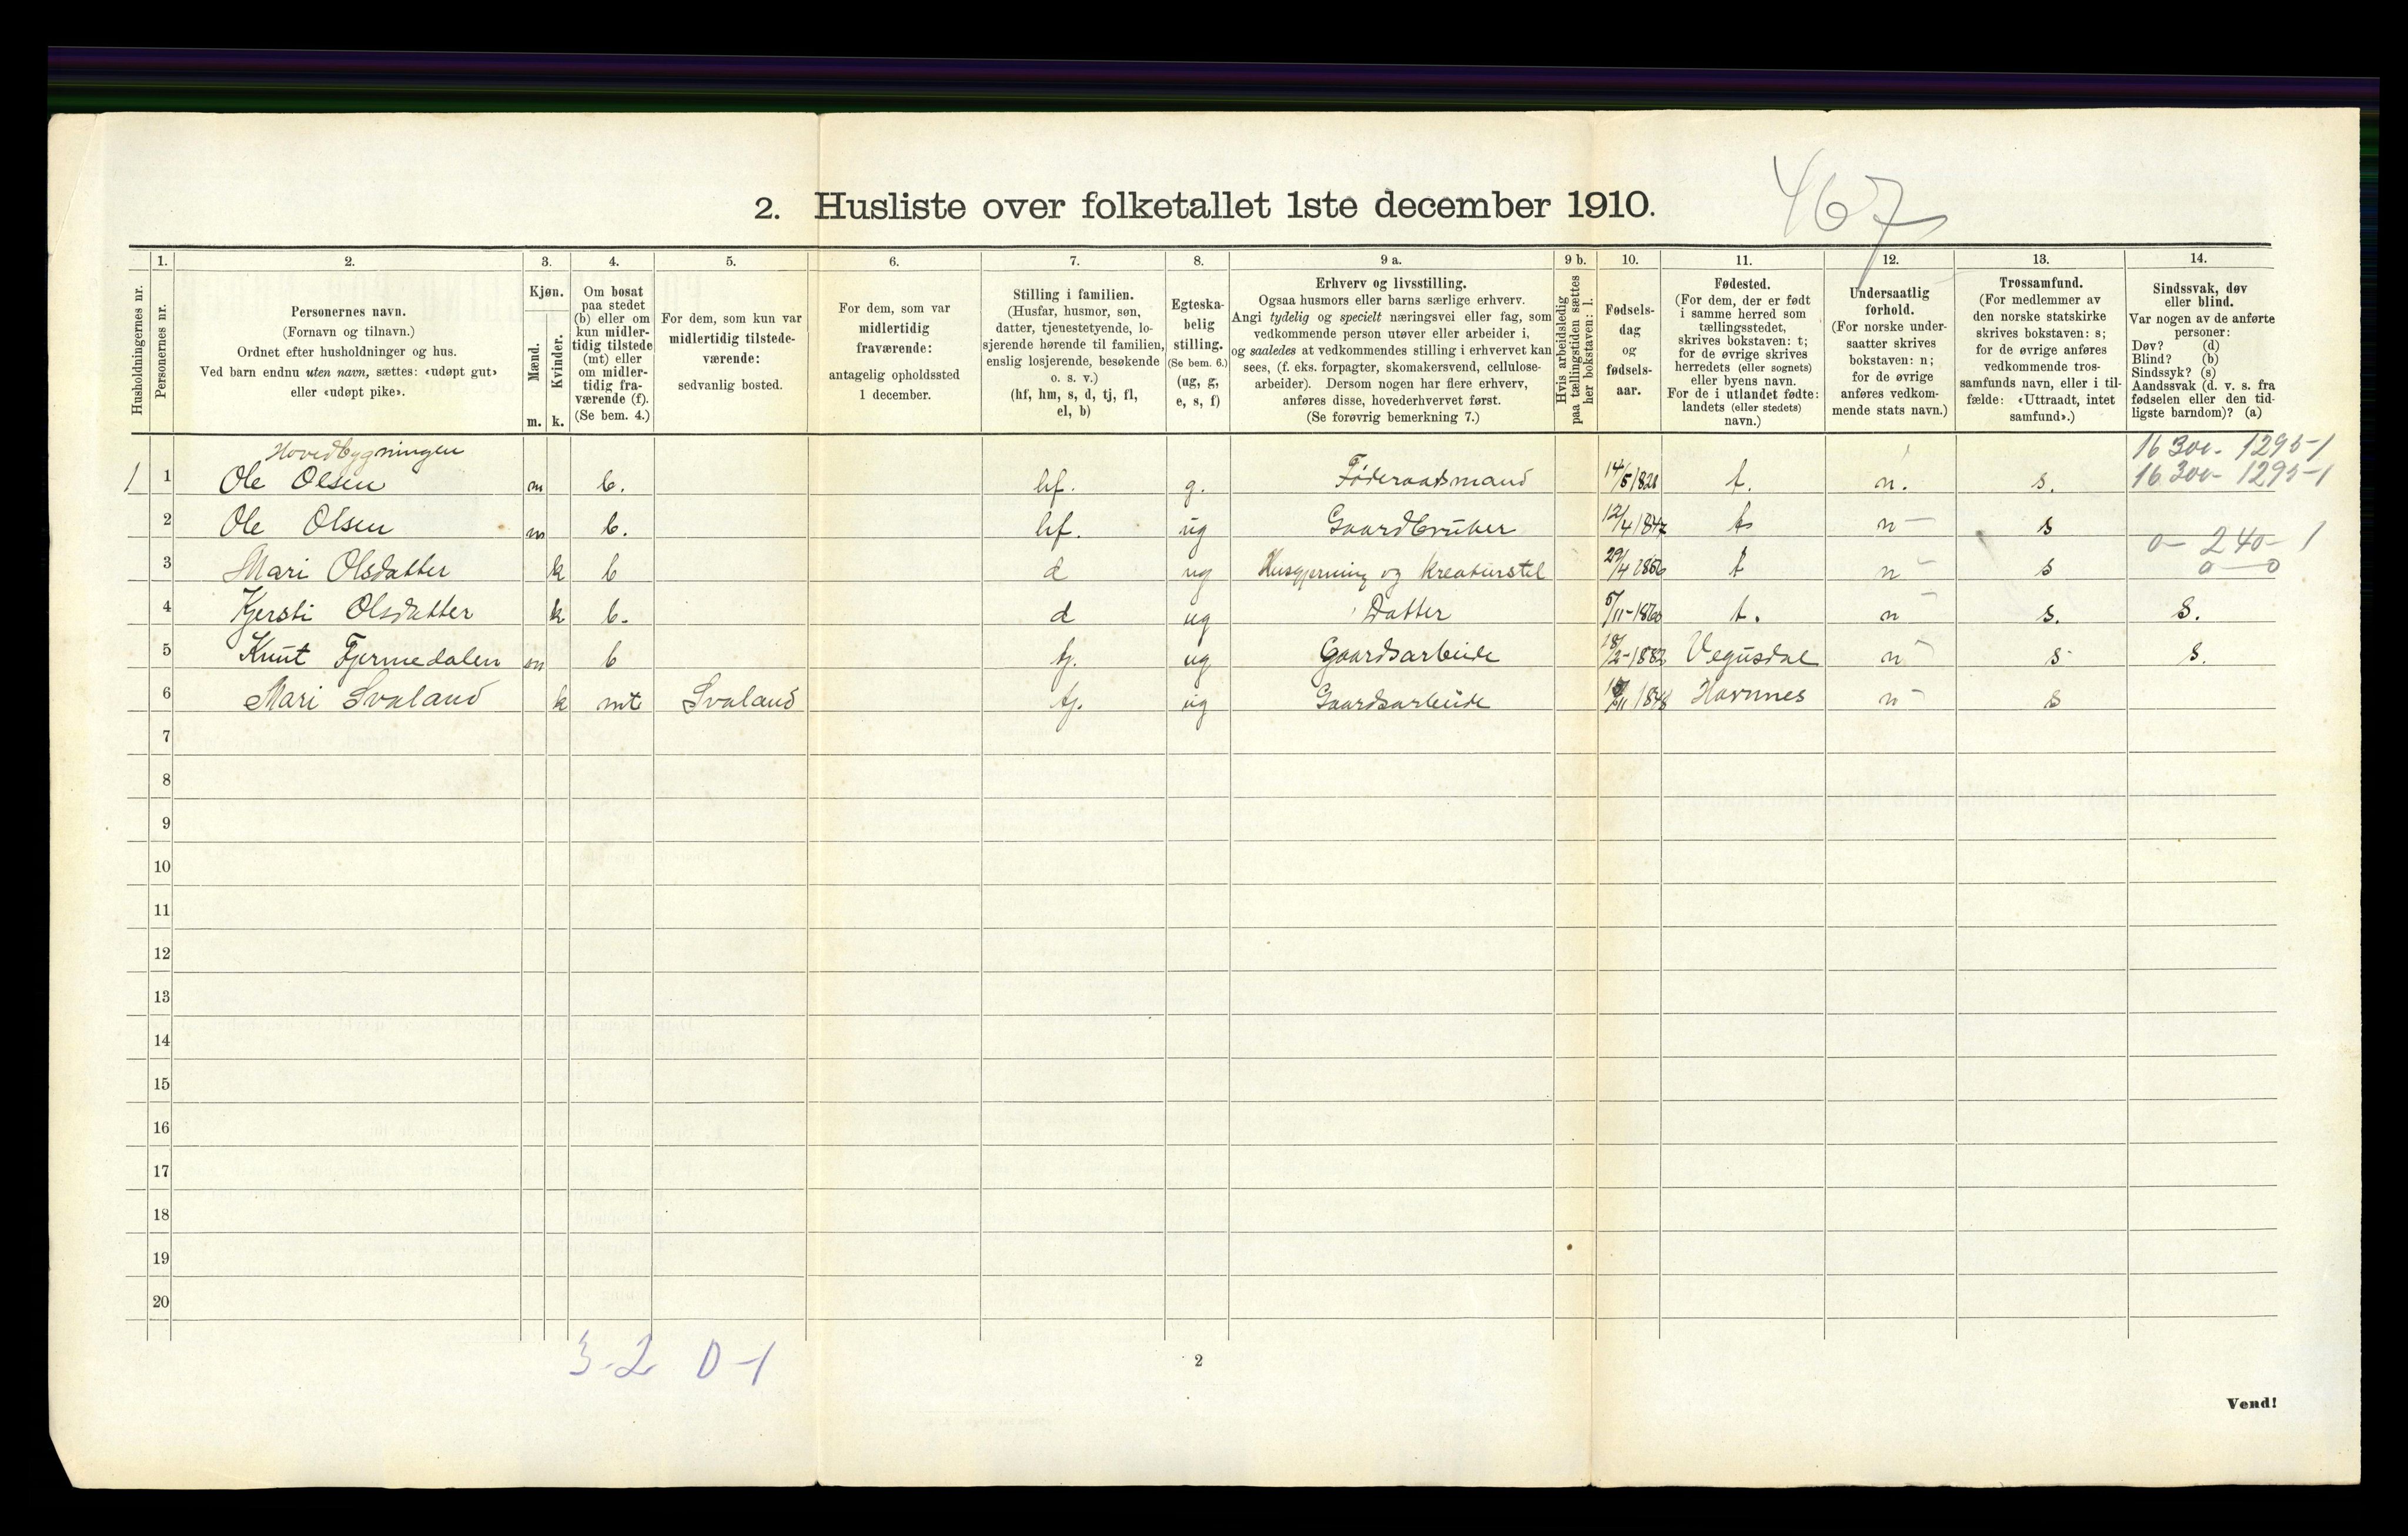 467
2. Husliste over folketallet 1ste december 1910.
Husholdningernes nr.
1.
Personernes nr.
2.
Personernes navn.
(Fornavn og tilnavn.)
Ordnet efter husholdninger og hus.
Ved barn endnu uten navn, sættes: «udøpt gut»
eller «udøpt pike».
3.
Kjøn.
Mænd.
m.
Kvinder.
k.
4.
Om bosat
paa stedet
(b) eller om
kun midler-
tidig tilstede
(mt) eller
om midler-
tidig fra-
værende (f).
(Se bem. 4.)
5.
For dem, som kun var
midlertidig tilstede-
værende:
sedvanlig bosted.
6.
For dem, som var
midlertidig
fraværende:
antagelig opholdssted
1 december.
7.
Stilling i familien.
(Husfar, husmor, søn,
datter, tjenestetyende, lo-
sjerende hørende til familien,
enslig losjerende, besøkende
o. s. v.)
(hf, hm, s, d, tj, fl,
el, b)
8.
Egteska-
belig
stilling.
(Se bem. 6.)
(ug, g,
e, s, f)
9 a.
Erhverv og livsstilling.
Ogsaa husmors eller barns særlige erhverv.
Angi tydelig og specielt næringsvei eller fag, som
vedkommende person utøver eller arbeider i,
og saaledes at vedkommendes stilling i erhvervet kan
sees, (f. eks. forpagter, skomakersvend, cellulose-
arbeider). Dersom nogen har flere erhverv,
anføres disse, hovederhvervet først.
(Se forøvrig bemerkning 7.)
9 b.
Hvis arbeidsledig
paa tællingstiden sættes
her bokstaven: l.
10.
Fødsels-
dag
og
fødsels-
aar.
11.
Fødested.
(For dem, der er født
i samme herred som
tællingsstedet,
skrives bokstaven: t;
for de øvrige skrives
herredets (eller sognets)
eller byens navn.
For de i utlandet fødte:
landets (eller stedets)
navn.)
12.
Undersaatlig
forhold.
(For norske under-
saatter skrives
bokstaven: n;
for de øvrige
anføres vedkom-
mende stats navn.)
13.
Trossamfund.
(For medlemmer av
den norske statskirke
skrives bokstaven: s;
for de øvrige anføres
vedkommende tros-
samfunds navn, eller i til-
fælde: «Uttraadt, intet
samfund».)
14.
Sindssvak, døv
eller blind.
Var nogen av de anførte
personer:
Døv? (d)
Blind? (b)
Sindssyk? (s)
Aandssvak (d. v. s. fra
fødselen eller den tid-
ligste barndom)? (a)
Hovedbygningen 16 300 - 1295-1
1 1 Ole Olsen m b. hf. g. Føderaadsmand 14/5 1821 t. n. s. 16 300 - 1295-1
2 Ole Olsen m b. hf. ug Gaardbruker 12/4 1847 t. n s
0 - 240 - 1
3 Mari Olsdatter k b d ug Husgjerning og kreaturstel 29/4 1856 t n s 0 - 0
4 Kjersti Olsdatter k b. d ug Datter 5/11-1860 t. n s. S.
5 Knut Fjermedalen m b tj. ug Gaardsarbeide 18/2-1882 Vegusdal n s S.
6 Mari Svaland k mt Svaland tj. ug Gaardsarbeide 1848 Havnnes n s
7
8
9
10
11
12
13
14
15
16
17
18
19
20
3-2 0-1
2
Vend!